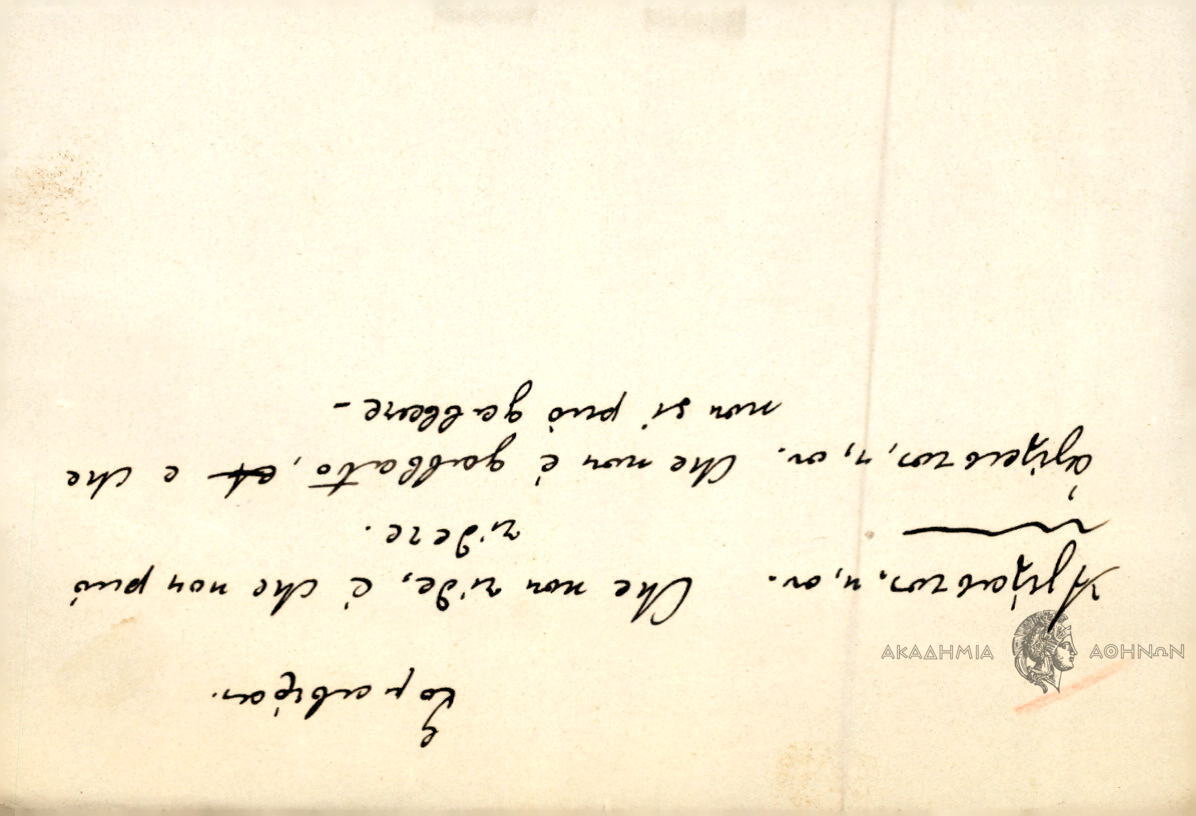 Σομαβέρας.
Ἀγέλαστος, η, ον. Che non ride, è che non può
ridere.
ἀγέλαστος, η, ον. Che non è gabbato, e che
non si può gabbare –
ΑΚΑΔΗΜΙΑ ΑΘΗΝΩΝ